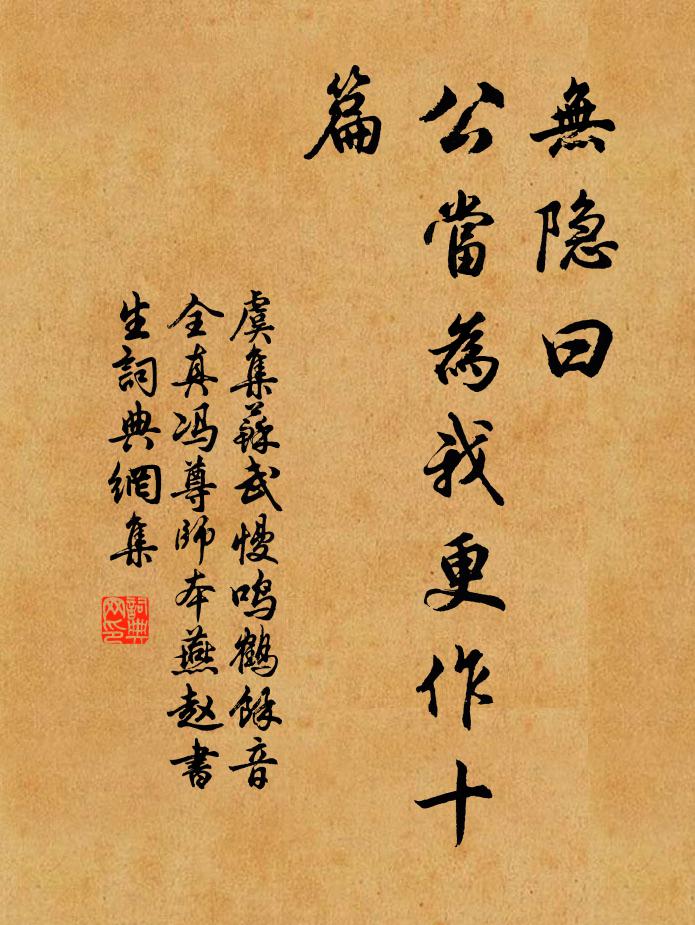 無隐曰
公當為我更作十
篇
虞集蘇武慢鳴鶴餘音
全真冯尊師本燕赵書
生詞典網集
詞典
网印